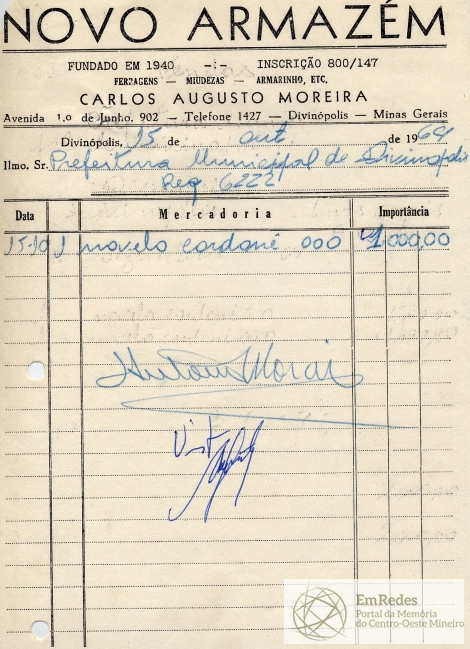 NOVO ARMAZÉM
FUNDADO EM 1940 -:- INSCRIÇÃO 800/147
FERRAGENS — MIUDEZAS — ARMARINHO, ETC.
CARLOS AUGUSTO MOREIRA
Avenida 1.o de Junho, 902 — Telefone 1427 — Divinópolis — Minas Gerais
Divinópolis, 15 de out de 1964
Ilmo. Sr. Prefeitura Municipal de Divinopolis
Req 6222
Data Mercadoria Importância
15-10 1 novelo cordonê 000 1000,00
Morais
Visto
EmRedes
Portal da Memória
do Centro-Oeste Mineiro